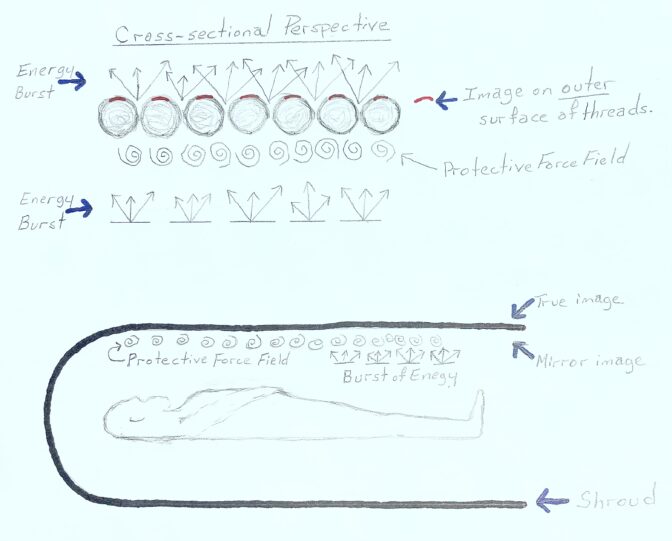 Cross-sectional Perspective
Energy
Burst
Image on outer
surface of threads.
Protective Force Field
Energy
Burst
True image
Protective Force Field
Burst of Enegy
Mirror image
Shroud